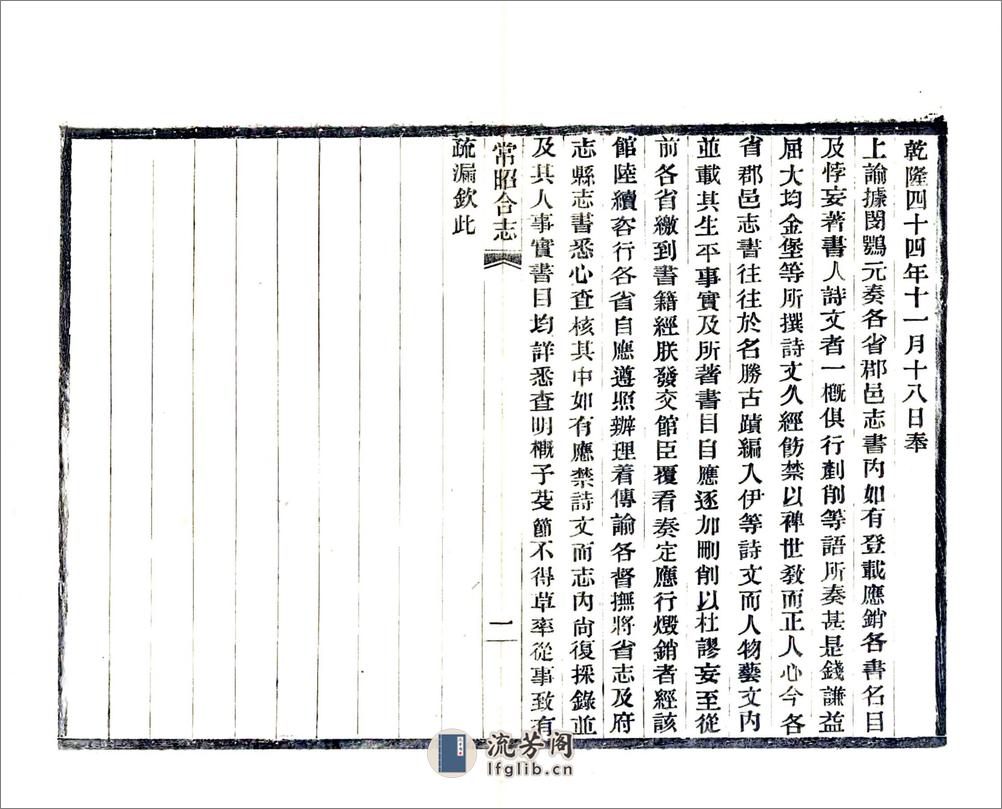 乾隆四十四年十一月十八日奉
上諭據閔鶚元奏各省郡邑志書內如有登載應銷各書名目
及悖妄著書人詩文者一槪俱行剷削等語所奏甚是錢謙益
屈大均金堡等所撰詩文久經飭禁以裨世敎而正人心今各
省郡邑志書往往於名勝古蹟編入伊等詩文而人物藝文內
並載其生平事實及所著書目自應逐加刪削以杜謬妄至從
前各省繳到書籍經朕發交館臣覆看奏定應行燬銷者經該
館陸續咨行各省自應遵照辦理着傳諭各督撫將省志及府
志縣志書悉心查核其中如有應禁詩文而志內尙復採錄並
及其人事實書目均詳悉查明槪予芟節不得草率從事致有
疏漏欽此
常昭合志
一
流芳阁
lfglib.cn